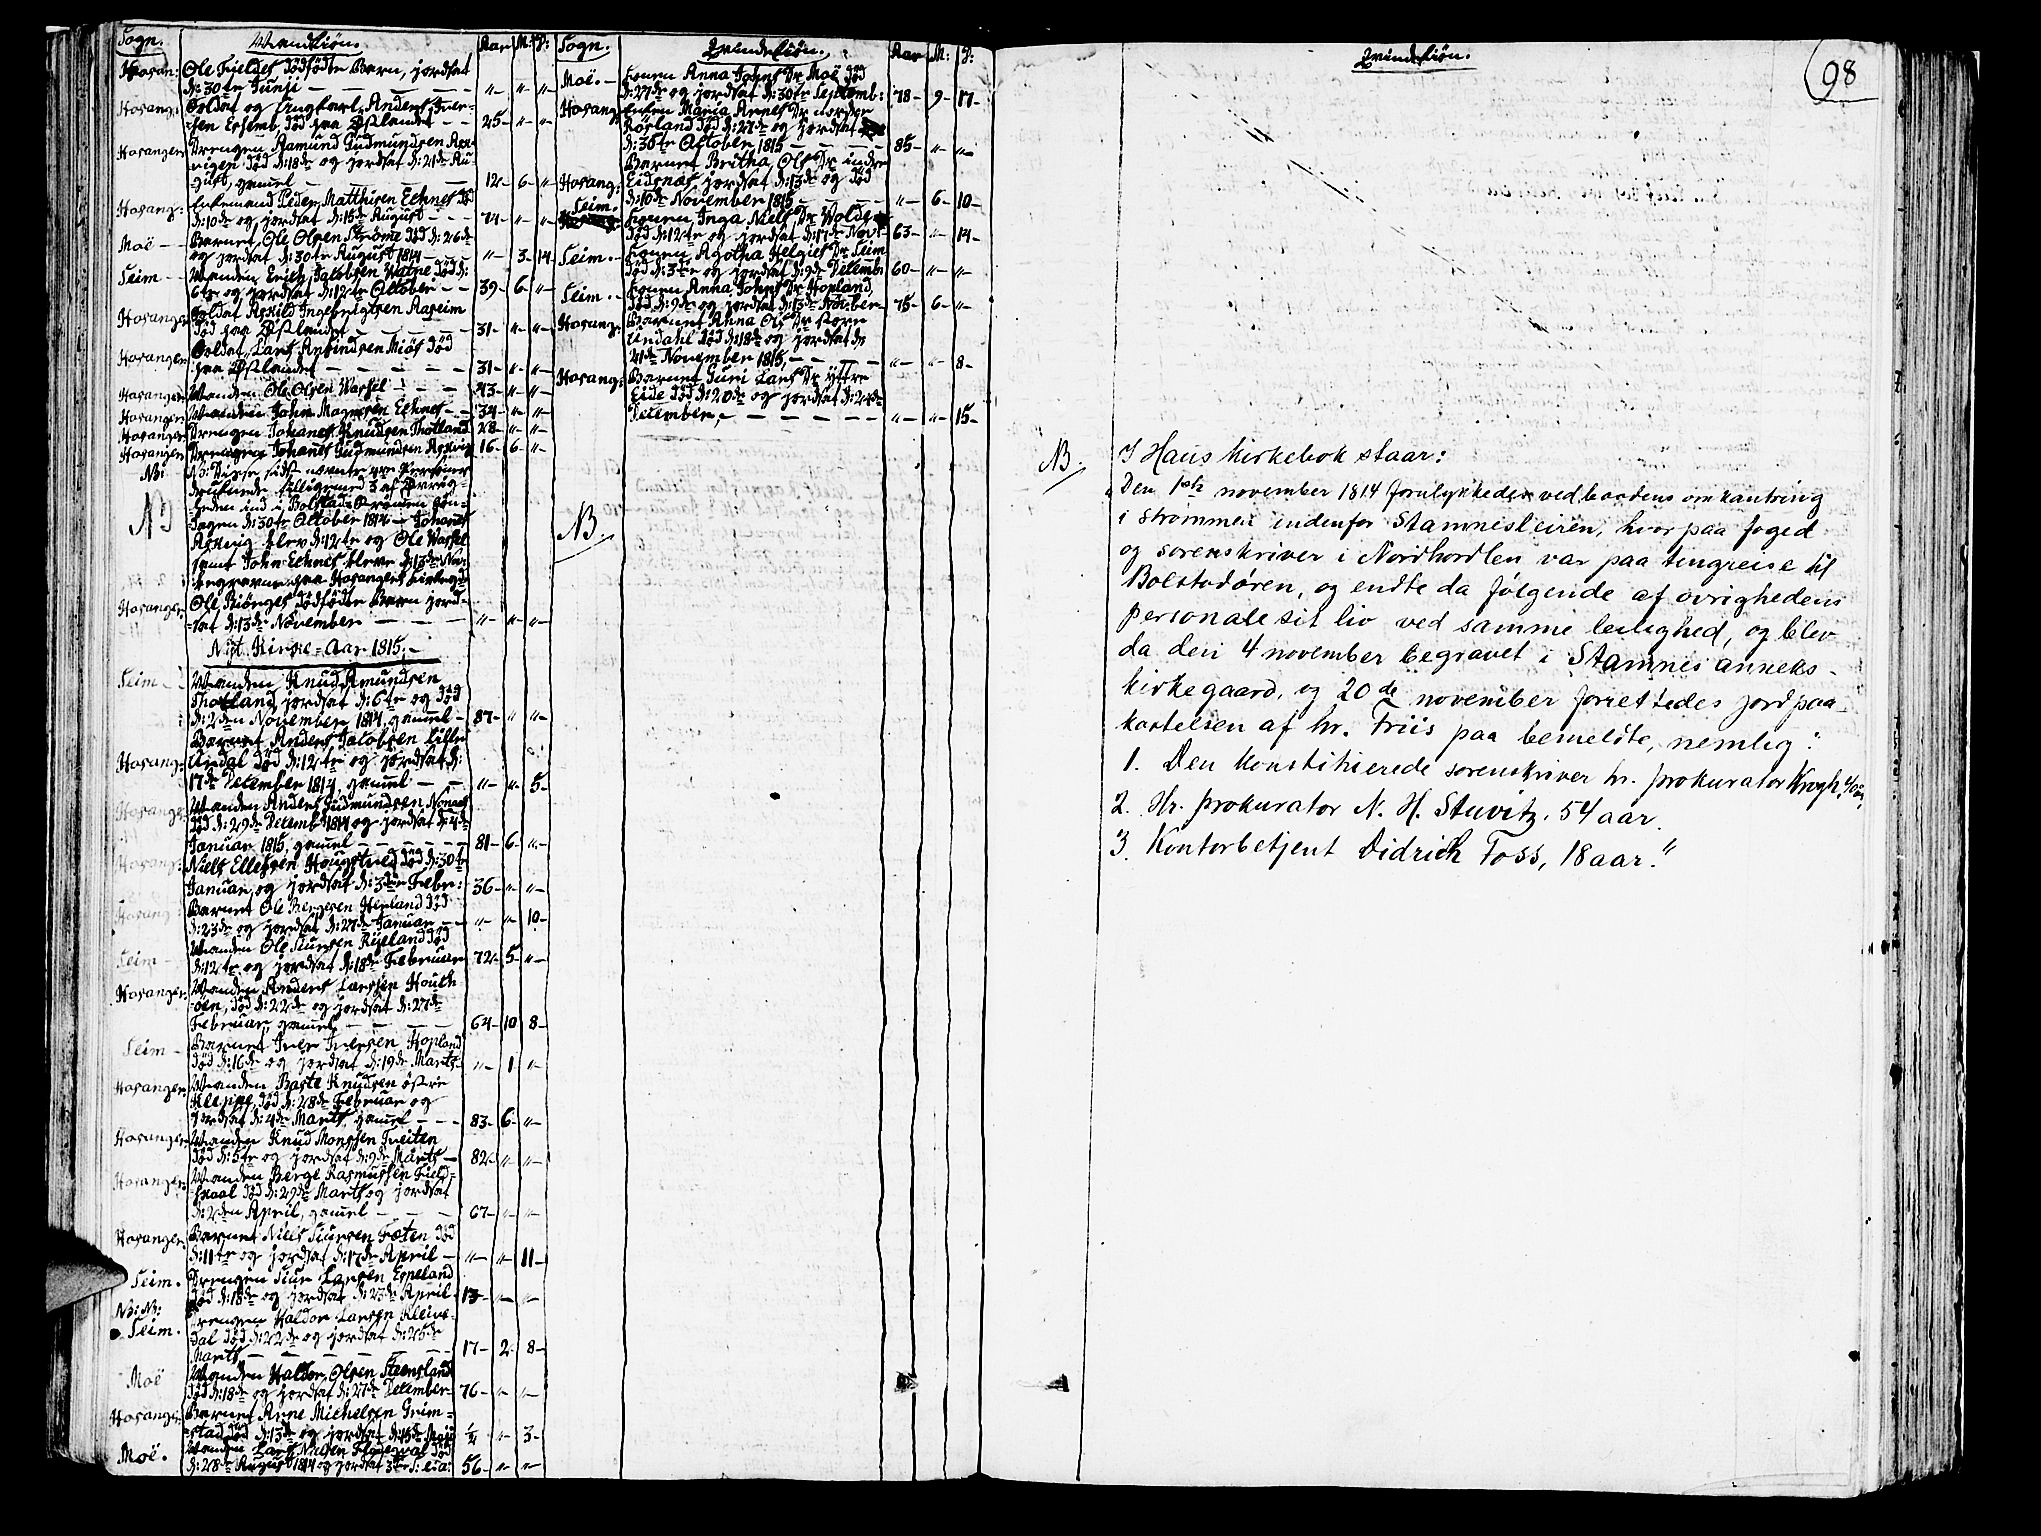 Sogn. Mandkiøn. Aar M: D:
Hosang: Ole Fieldes dødfødte Barn, jordsat
d: 30te Junji " " "
Hosang: Soldat og Ungkarl Anders Iver-
sen død paa Østlandet 25 " "
Hosanger Drengen Aamund Gudmundsen
død d: 18de og jordsat d: 21de Au-
gust, gamel 12 6 "
Hosang: Enkemand Peder Matthisen Echnes
d: 10de og jordsat d: 15de August 74 " "
Moë Barnet Ole Olsen Strøme død d: 26de
og jordsat d: 30te August 1814 " 3 14
Seim Manden Erich Jacobsen Watne død d:
6te og jordsat d: 12te October 39 6 "
Hosanger Soldat Askild Ingebrigtsen Aaseim
død paa Østlandet 31 " "
Hosanger Soldat Lars Miøs død
paa Østlandet 31 " "
Hosanger Manden Ole Olsen Wassel 43 " "
Hosanger Manden John Magnesen Echnes 34 " "
Hosanger Drengen Johanes Knudsen Thotland 28 " "
Hosanger Drengen Johanes Gudmundsen Askvig 16 6 "
NB: NB: Disse sidst nevnte 4re Personer
druknede tilligemed 3 af Øvrig-
heden ind i Bolstad Strømen Søn-
dagen d: 30te October 1814 Johanes
Askvig blev d: 12te og Ole Wassel
samt John Echnes bleve d: 13de Nov:
begravne paa Hosangers Kirkegd
Hosanger Ole Biørges dødfødte Barn jord-
sat d: 13de November " " "
Nyt Kirke-Aar 1815.
Seim Manden Knud Amundsen
Thotland, jordsat d: 6te og død
d: 2den November 1814, gamel 87 " "
Barnet Anders Jacobsen Lille
Hosang: Undal død d: 12te og jordsat d:
17de December 1814, gamel " " 5
Hosanger Manden Anders Gudmundsen Nonaas
død d: 29de Decemb 1814 og jordsat d: 4de
Januar 1815, gamel 81 6 "
Hosang: Niels Ellefsen Hougstved død d: 30te
Januar, og jordsat d: 3die Febr: 36 " "
Hosang: Barnet Ole Bergesen Herland død
d: 23de og jordsat d: 27de Januar " " 10
Seim Manden Ole Siursen Ryeland død
d: 12te og jordsat d: 18de Februar 72 5 "
Hosanger Manden Anders Larsen Houth
øen, død d: 22de og jordsat d: 27de
Februar, gamel 64 10 8
Seim Barnet Iver Iversen Hopland
død d: 16de og jordsat d: 19de Marts " 1 "
Hosanger Manden Baste Knudsen østre
Kleppe, død d: 28de Februar og
Jordsat d: 4de Marts, gamel 83 6 "
Hosanger Manden Knud Monssen Tveiten
død d: 5te og jordsat d: 9de Marts 82 " "
Hosanger Manden Berge Rasmussen Field-
skaal død d: 29de Marts og jordsat
d: 2den April, gamel 67 " "
Hosanger Barnet Niels Siursen Fæten død
d: 11te og jordsat d: 17de April " " 11
Seim. Drengen Siur Larsen Eppeland
død d: 18de og jordsat d: 23de April 13 " "
NB: NB:
Seim. Drengen Haldor Larsen Kleive-
dal død d: 22de og jordsat d: 26de
Marts 17 2 8
Moë Manden Haldor Olsen Steensland
død d: 18de og jordsat d: 27de December 76 " "
Hosanger Barnet Arne Michelsen Grim-
stad død d: 13de og jordsat d: 15de ½ " 3
Moë. Manden Lars Nielsen død
d: 28de August 1814 og jordsat 56 " "
Sogn. Qvindekiøn. Aar M: D:
Moë. Konen Anna Johns Dr Moë død
d: 27de og jordsat d: 30te Septemb: 78 9 17
Hosang: Enken Maria Arnes Dr nordre
Rørland død d: 27de og jordsat
d: 30te October 1815 85 " "
Hosang: Barnet Britha Ols Dr indre
Eidsnes, jordsat d: 13de og død
d: 10de November 1815 " 6 10
Seim. Konen Inga Niels Dr Wolde
død d: 12te og jordsat d: 17de Nov: 63 " 14
Seim. Konen Agotha Helgies Dr Seim
død d: 3die og jordsat d: 9de Decemb: 60 " "
Seim. Konen Anna Johns Dr Hopland
død d: 9de og jordsat d: 13de 75 6 "
Hosang: Barnet Anna Ols Dr store
Undahl død d: 18de og jordsat d:
21de November 1815 " " 8
Hosang: Barnet Guri Lars Dr Yttre
Eide død d: 20de og jordsat d: 24de
December, " " 15
NB
NB
Qvindekiøn.
98
NB. I Haus kirkebok staar:
"Den 1ste november 1814 forulykkedes ved baadens omkantring
i strømmen indenfor Stamnesleiren, hvor paa foged
og sorenskriver i Nordhordlen var paa tingreise til
Bolstadøren, og endte da følgende af øvrighedens
personale sit liv ved samme leilighed, og blev
da den 4 november begravet i Stamnes anneks-
kirkegaard, og 20de november forrettedes jordpaa-
kastelsen af hr. Friis paa bemeldte, nemlig:
1. Den konstituerede sorenskriver hr. prokurator Krogh,
2. Hr. prokurator N. H. Stuvitz. 54 aar.
3. Kontorbetjent Didrich Foss, 18 aar."